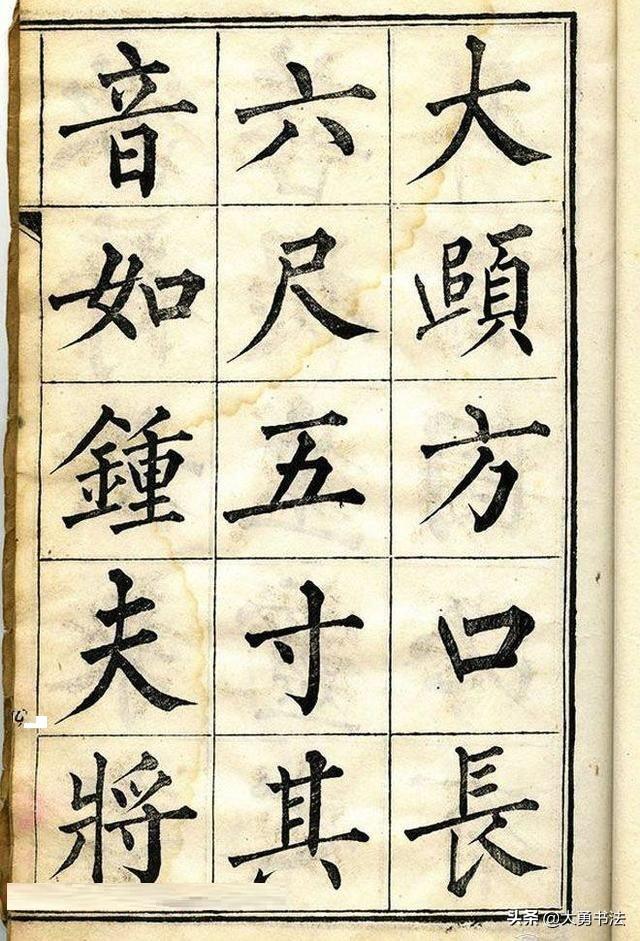 大頤方口長
六尺五寸其
音如鍾夫將
头条 @大勇书法